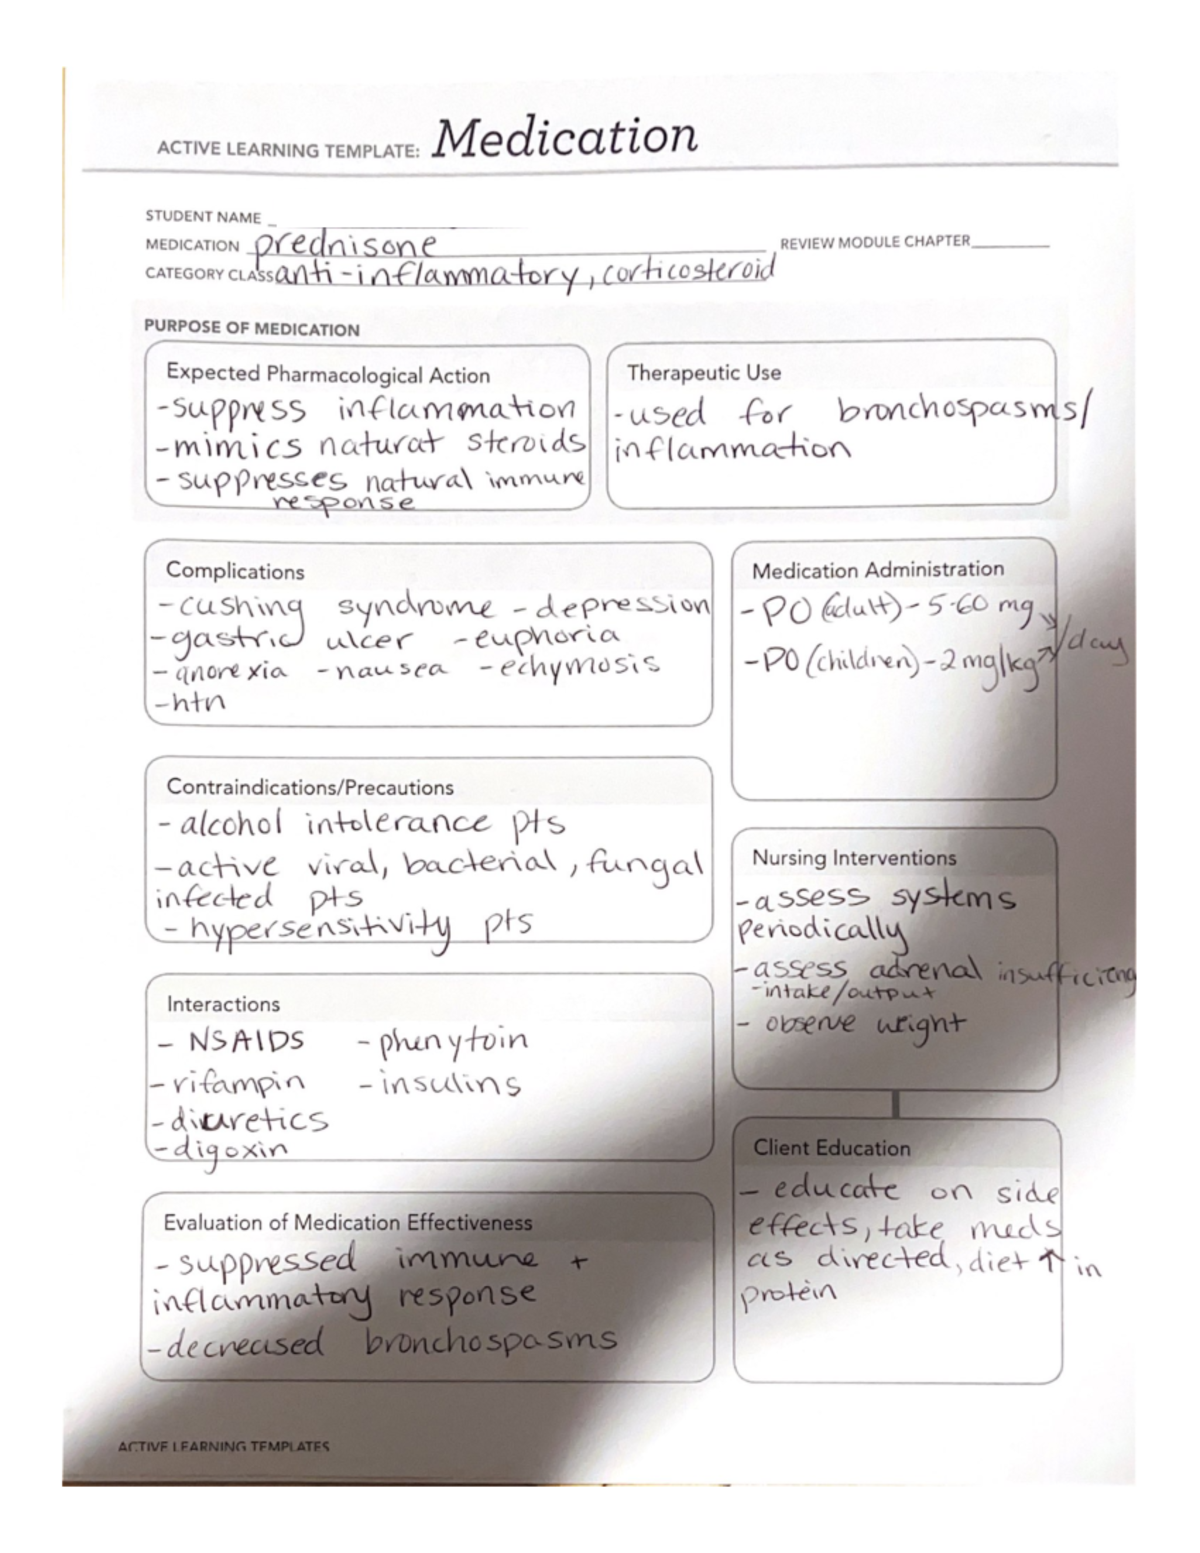 ACTIVE LEARNING TEMPLATE: Medication
STUDENT NAME _
MEDICATION prednisone
REVIEW MODULE CHAPTER
CATEGORY CLASS anti-inflammatory, corticosteroid
PURPOSE OF MEDICATION
Expected Pharmacological Action
-suppress inflammation
-mimics natural steroids
- suppresses natural immune
response
Therapeutic Use
-used for bronchospasms/
inflammation
Complications
-cushing syndrome - depression
-gastric ulcer -euphoria
- anorexia -nausea -echymosis
-htn
Medication Administration
-PO (adult)- 5-60 mg
/day
-PO (children)-2 mg/kg
Contraindications/Precautions
- alcohol intolerance pts
-active viral, bacterial, fungal
infected pts
- hypersensitivity pts
Nursing Interventions
-assess systems
periodically
-assess adrenal
-intake/output
- observe weight
Interactions
- NSAIDS - phenytoin
-rifampin -insulins
-diuretics
-digoxin
Client Education
- educate on side
effects, take meds
as directed, diet ↑ in
protein
Evaluation of Medication Effectiveness
-suppressed immune +
inflammatory response
-decreased bronchospasms
ACTIVE LEARNING TEMPLATES